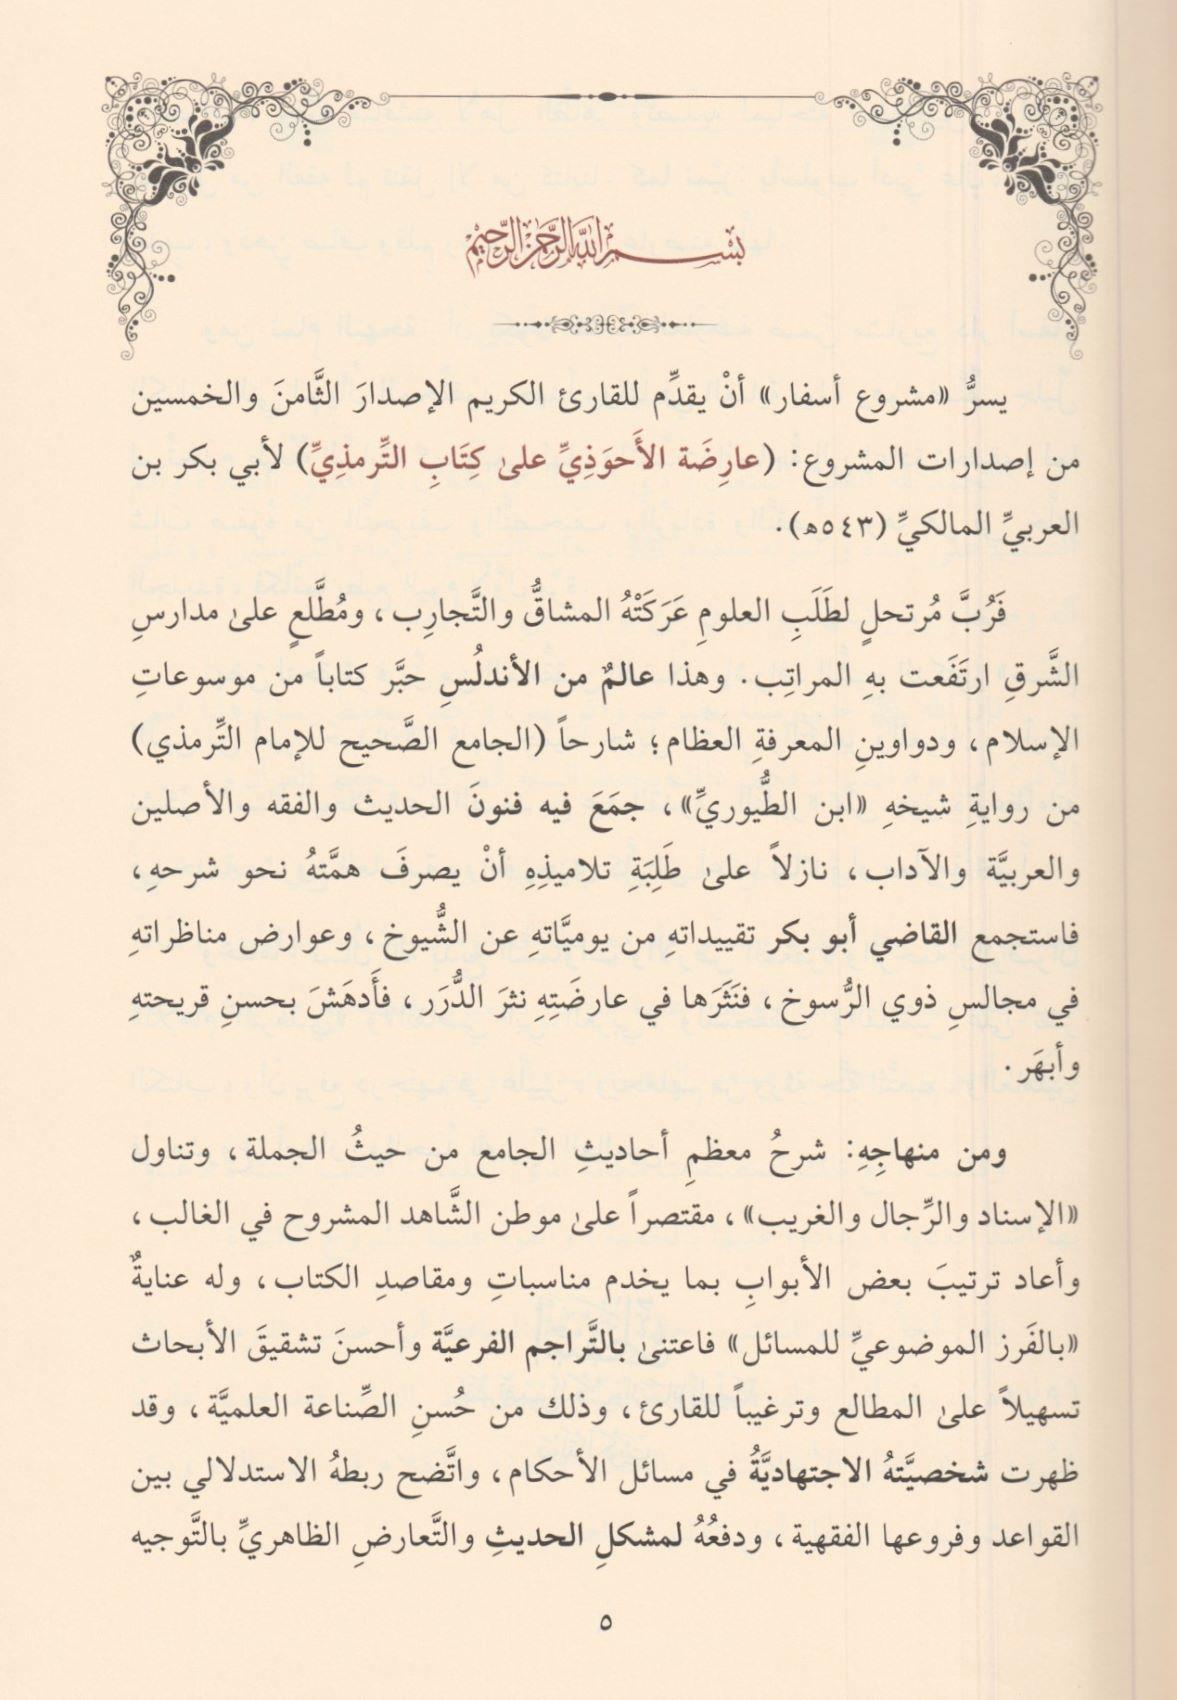 بسم الله الرحمن الرحيم
يسرُّ «مشروع أسفار» أنْ يقدِّم للقارئ الكريم الإصدارَ الثَّامنَ والخمسين
من إصدارات المشروع: (عارِضَة الأَحوَذِيِّ علىٰ كِتَابِ التِّرمذِيِّ) لأبي بكر بن
العربيِّ المالكيِّ (٥٤٣هـ).
فَرُبَّ مُرتحلٍ لطَلَبِ العلومِ عَرَكَتْهُ المشاقُّ والتَّجارِب، ومُطَّلعٍ علىٰ مدارسِ
الشَّرقِ ارتَفَعت بهِ المراتِب. وهذا عالمٌ من الأندلُسِ حبَّر كتاباً من موسوعاتِ
الإسلام، ودواوينِ المعرفةِ العظام؛ شارحاً (الجامع الصَّحيح للإمام التِّرمذي)
من روايةِ شيخهِ «ابن الطُّيوريِّ»، جمَعَ فيه فنونَ الحديث والفقه والأصلين
والعربيَّة والآداب، نازلاً علىٰ طَلِبَةِ تلاميذِهِ أنْ يصرفَ همَّتهُ نحو شرحهِ،
فاستجمع القاضي أبو بكر تقييداتهِ من يوميَّاتهِ عن الشُّيوخ، وعوارض مناظراتهِ
في مجالسِ ذوي الرُّسوخ، فنَثَرَها في عارضَتِهِ نثرَ الدُّرَر، فأَدهَشَ بحسنِ قريحتهِ
وأبهَر.
ومن منهاجِهِ: شرحُ معظمِ أحاديثِ الجامع من حيثُ الجملة، وتناول
«الإسناد والرِّجال والغريب»، مقتصراً علىٰ موطن الشَّاهد المشروح في الغالب،
وأعاد ترتيبَ بعض الأبوابِ بما يخدم مناسباتِ ومقاصدِ الكتاب، وله عنايةٌ
«بالفَرز الموضوعيِّ للمسائل» فاعتنىٰ بالتَّراجم الفرعيَّة وأحسنَ تشقيقَ الأبحاث
تسهيلاً علىٰ المطالع وترغيباً للقارئ، وذلك من حُسنِ الصِّناعة العلميَّة، وقد
ظهرت شخصيَّتهُ الاجتهاديَّةُ في مسائل الأحكام، واتَّضح ربطهُ الاستدلالي بين
القواعد وفروعها الفقهية، ودفعُهُ لمشكلِ الحديثِ والتَّعارضِ الظاهريِّ بالتَّوجيه
٥